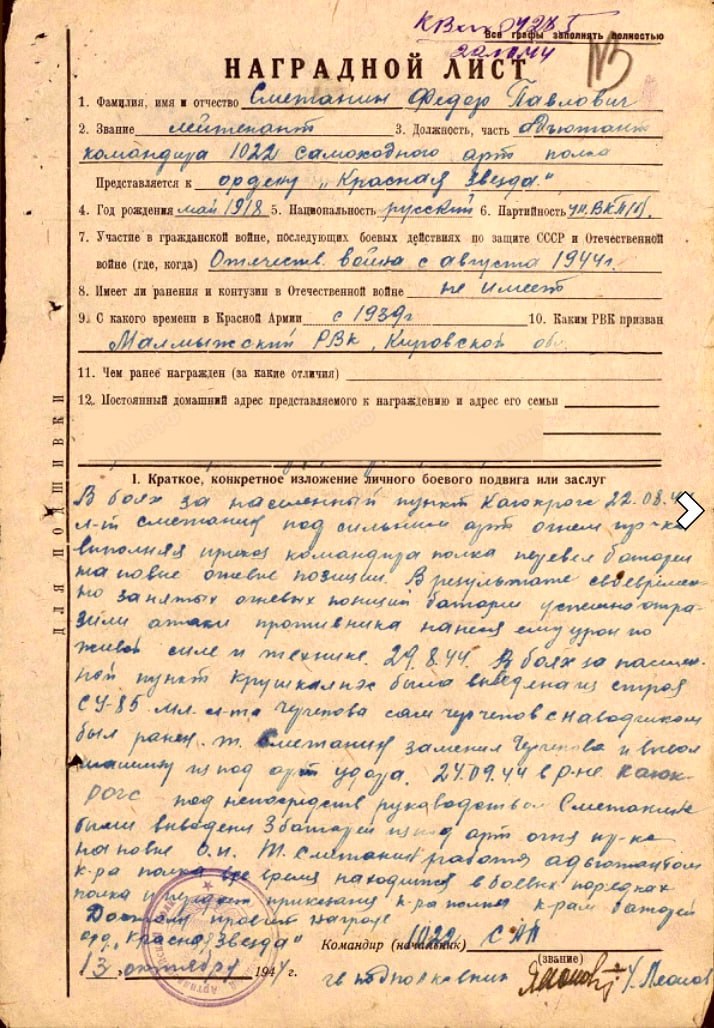 Все графы заполнять полностью
НАГРАДНОЙ ЛИСТ
1. Фамилия, имя и отчество Сметанин Федор Павлович
2. Звание лейтенант 3. Должность, часть адъютант
командира 1022 самоходного арт полка
Представляется к ордену „Красная Звезда."
4. Год рождения май 1918 5. Национальность русский 6. Партийность чл. ВКП(б).
7. Участие в гражданской войне, последующих боевых действиях по защите СССР и Отечественной
войне (где, когда) Отечеств. война с августа 1944г.
8. Имеет ли ранения и контузии в Отечественной войне не имеет
9. С какого времени в Красной Армии с 1939г 10. Каким РВК призван
Малмыжский РВК, Кировской обл.
11. Чем ранее награжден (за какие отличия)
12. Постоянный домашний адрес представляемого к награждению и адрес его семьи
ДЛЯ ПОДШИВКИ
I. Краткое, конкретное изложение личного боевого подвига или заслуг
В боях за населенный пункт 22.08.4
л-т Сметанин под сильным арт огнем пр-ка
выполняя приказ командира полка перевел батареи
на новые огневые позиции. В результате своевремен-
но занятых огневых позиций батареи успешно отра-
зили атаки противника нанеся ему урон по
живой силе и технике. 29.8.44. В боях за населен-
ной пункт была выведена из строя
СУ-85 мл. л-та сам с наводчиком
был ранен. т. Сметанин заменил и вывел
машину из под арт удара. 24.09.44 в р-не
под непосредств руководством Сметанина
были выведены 3 батареи из под арт огня пр-ка
на новые о.п. Т. Сметанин работая адъютантом
к-ра полка все время находится в боевых порядках
полка и приказания к-ра полка к-рам батарей
Достоин правит награде
орд. „Красная Звезда"
Командир (начальник) 1022 САП
(звание)
13 октября 1944 г.
гв подполковник